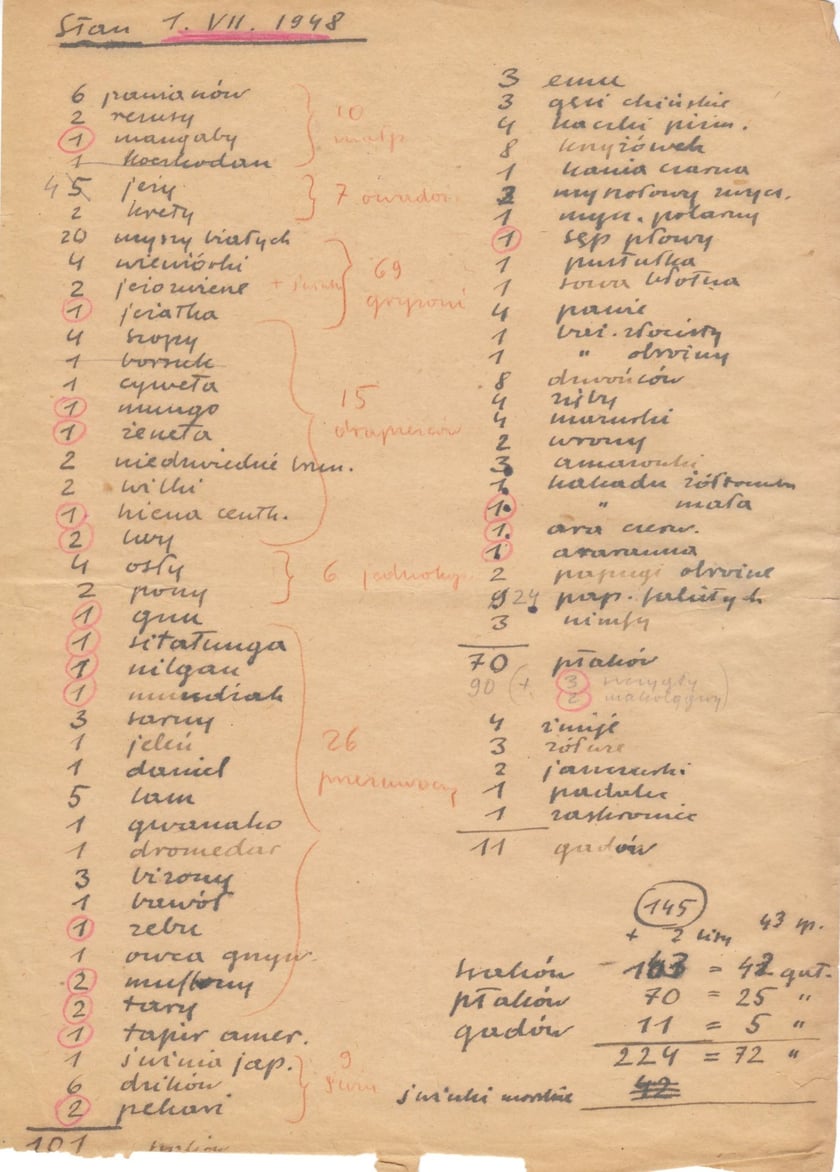 Stan 1. VII. 1948
6 pawianów
2 rezusy
10 małp
1 mangaby
1 koczkodan
4 5 jeży
7 owadoż.
2 krety
20 myszy białych
4 wiewiórki
69 gryzoni
2 jeżozwierze + świnki
1 jeżatka
4 szopy
1 borsuk
1 cyweta
1 mungo
15 drapieżców
1 żeneta
2 niedźwiedzie brun.
2 wilki
1 hiena centk.
2 lwy
4 osły
6 jednokop.
2 pony
1 gnu
1 sitatunga
1 nilgau
1
3 sarny
1 jeleń
26 przeżuwaczy
1 daniel
5 lam
1 gwanako
1 dromedar
3 bizony
1 bawół
1 zebu
1 owca grzyw.
2 muflony
2 tary
1 tapir amer.
1 świnia jap.
9 świń
6 dzików
2 pekari
101 ssaków
3 emu
3 gęsi chińskie
4 kaczki piżm.
8 krzyżówek
1 kania czarna
2 myszołowy zwycz.
1 mysz. polarny
1 sęp płowy
1 pustułka
1 sowa błotna
4 pawie
1 baż. złocisty
1 " obrożny
8 dzwońców
4 zięby
4 mazurki
2 wrony
3 amazonki
1 kakadu żółtoczub.
1 " mała
1 ara czerw.
1 ararauna
2 papugi obrożne
9 24 pap. falistych
3 nimfy
70 ptaków
90 (+ 3 szczygły
2 makolągwy)
4 żmije
3 żółwie
2 jaszczurki
1 padalec
1 zaskroniec
11 gadów
145
+ 2 lisy 43 sp.
ssaków 143 = 42 gat.
ptaków 70 = 25 "
gadów 11 = 5 "
224 = 72 "
świnki morskie 42